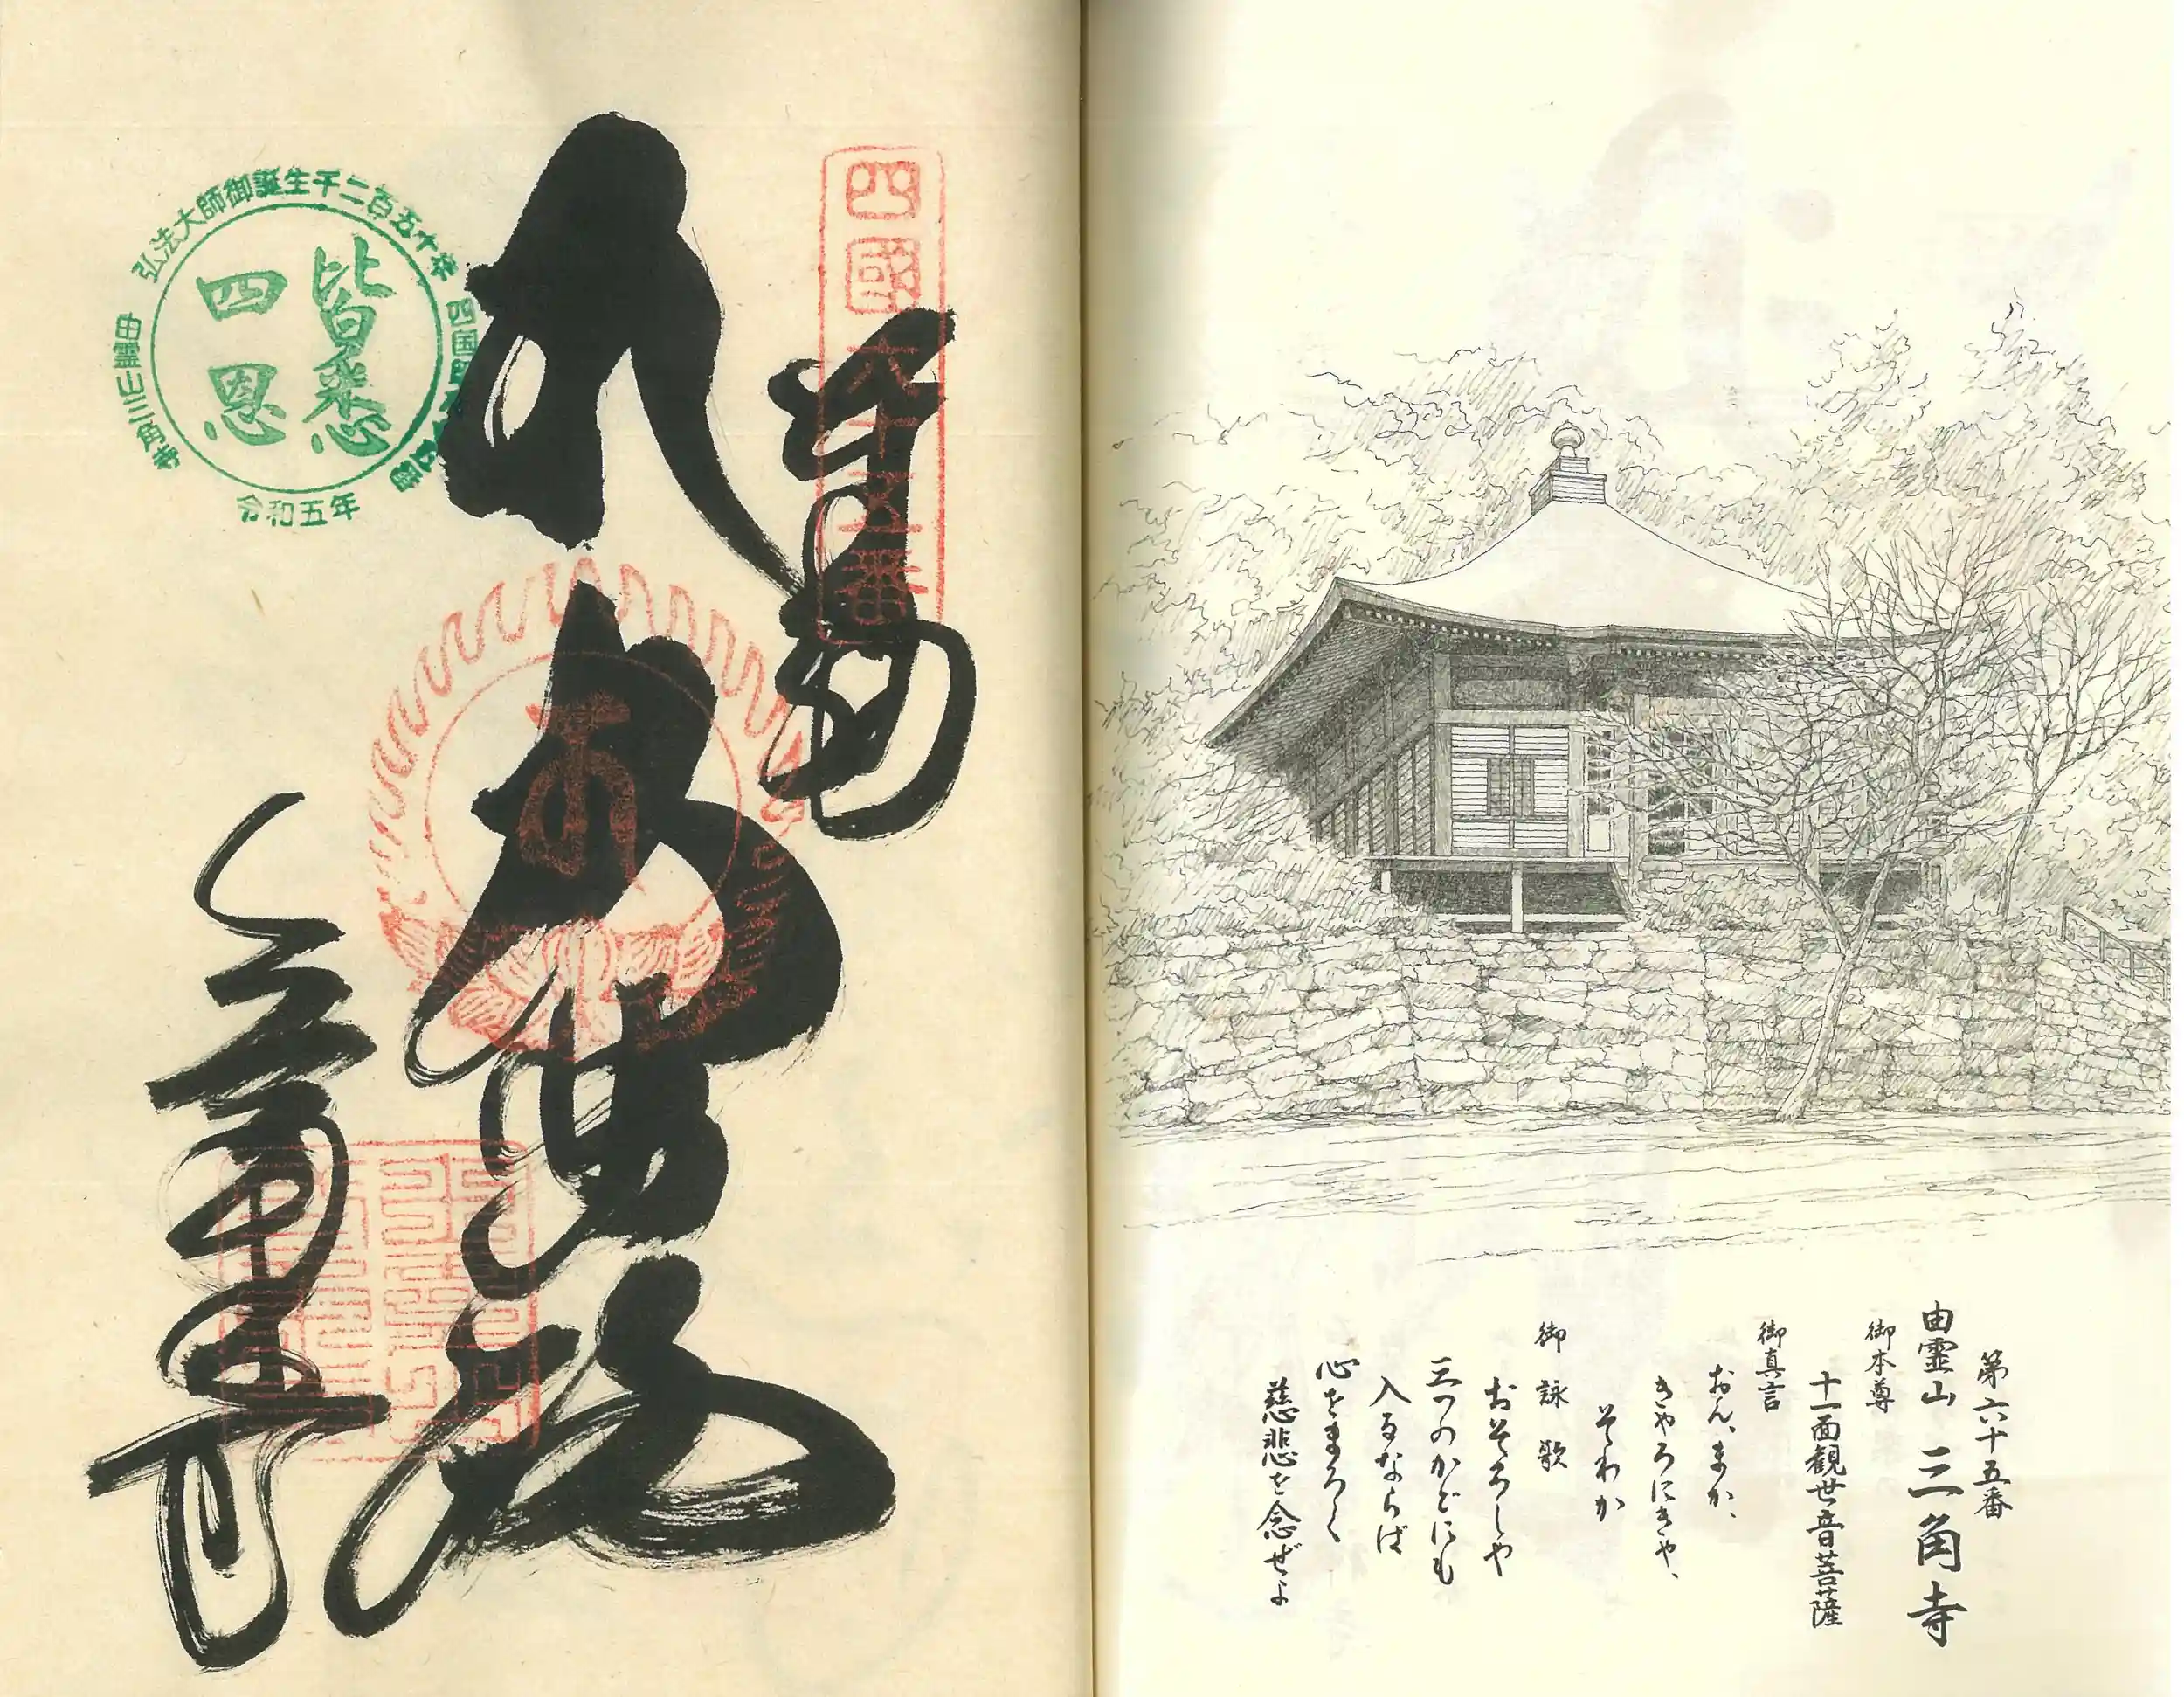 第六十五番
由霊山 三角寺
御本尊
十一面観世音菩薩
御真言
おん、まか、
きやろにきや、
そわか
御詠歌
おそろしや
三つのかどにも
入るならば
心をまろく
慈悲を念ぜよ
四國六十五番
奉納
大悲殿
三角寺
弘法大師御誕生千二百五十年
由霊山三角寺
令和五年
皆悉
四恩